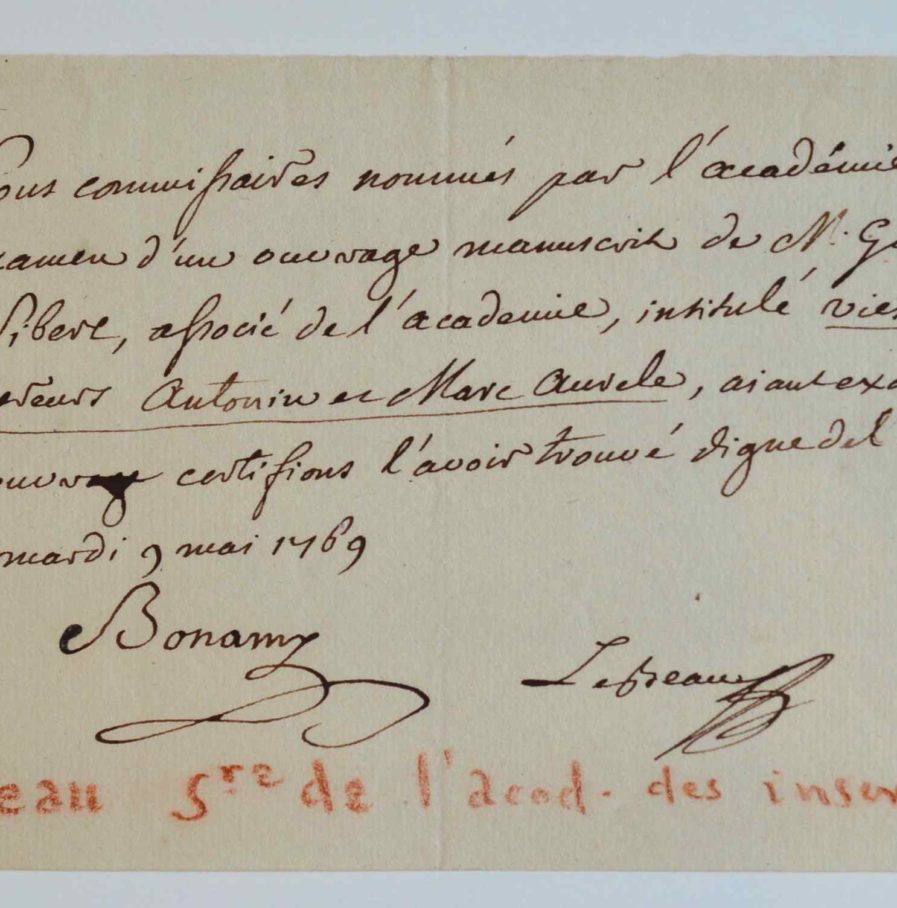 ous commissaires nommés par l'académie
xamen d'un ouvrage manuscrit de M. Ga
Sibert, associé de l'academie, intitulé vies
ereurs Antonin et Marc Aurele, aiant exa
ouvrage certifions l'avoir trouvé digne de l
mardi 9 mai 1769
Bonamy
LeBeau
eau Sre de l'acad. des inscr